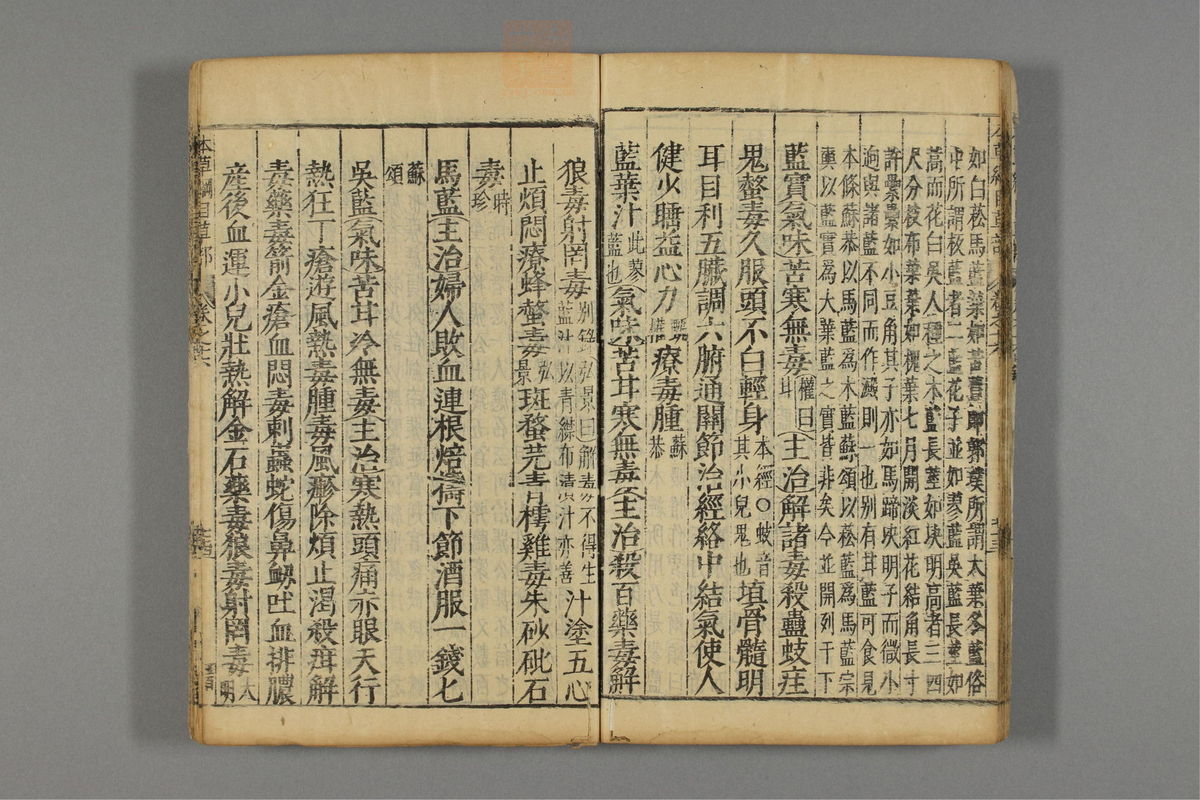 如白菘馬藍葉如苦蕒即郭璞所謂大葉冬藍俗
中所謂板藍者二藍花子並如蓼藍吳藍長莖如
蒿而花白吳人種之木藍長莖如决明高者三四
尺分枝布葉葉如槐葉七月開淡紅花結角長寸
許纍纍如小豆角其子亦如馬蹄决明子而微小
逈與諸藍不同而作澱則一也別有甘藍可食見
本條蘇恭以馬藍爲木藍蘇頌以菘藍爲馬藍宗
奭以藍實爲大葉藍之實皆非矣今並開列于下
藍實氣味苦寒無毒甘權曰主治解諸毒殺蠱蚑疰
鬼螫毒久服頭不白輕身本經○蚑音其小兒鬼也填骨髓明
耳目利五臟調六腑通關節治經絡中結氣使人
健少睡益心力甄權療毒腫蘇恭
藍葉汁此蓼藍也氣味苦甘寒無毒主治殺百藥毒解
狼毒射罔毒別錄弘景曰解毒不得生藍汁以青緤布漬汁亦善汁塗五心
止煩悶療蜂螫毒弘景斑蝥芫青樗雞毒朱砂砒石
毒時珍
馬藍主治婦人敗血連根焙擣下篩酒服一錢匕
蘇頌
吳藍氣味苦甘冷無毒主治寒熱頭痛赤眼天行
熱狂丁瘡遊風熱毒腫毒風𤺋除煩止渴殺疳解
毒藥毒箭金瘡血悶毒刺蟲蛇傷鼻衂吐血排膿
産後血運小兒壯熱解金石藥毒狼毒射罔毒大明
本草綱目草部